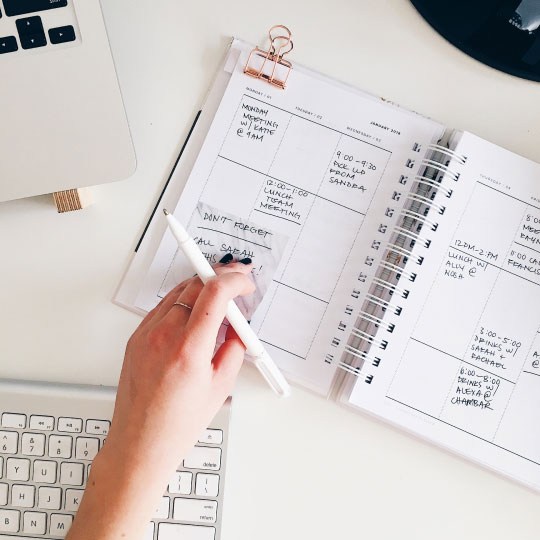 MONDAY / 01
TUESDAY / 02
WEDNESDAY / 03
JANUARY 2018
MONDAY
MEETING
W/ KATIE
@ 9AM
9:00-9:30
PICK UP
FROM
SANDRA
12:00-1:00
LUNCH
TEAM
MEETING
DON'T FORGET
CALL SARAH
THIS
!
THURSDAY / 04
12PM-2PM
LUNCH W/
ALLY @
NOSH
3:00-5:00
DRINKS W/
SARAH +
RACHEL
6:00-8:00
DRINKS W/
ALEXA @
CHAMBAR
8:00
11:00 CA
FRANCIS
6
7
8
9
0
Y
U
I
H
J
K
B
N
M
delete
return
shift